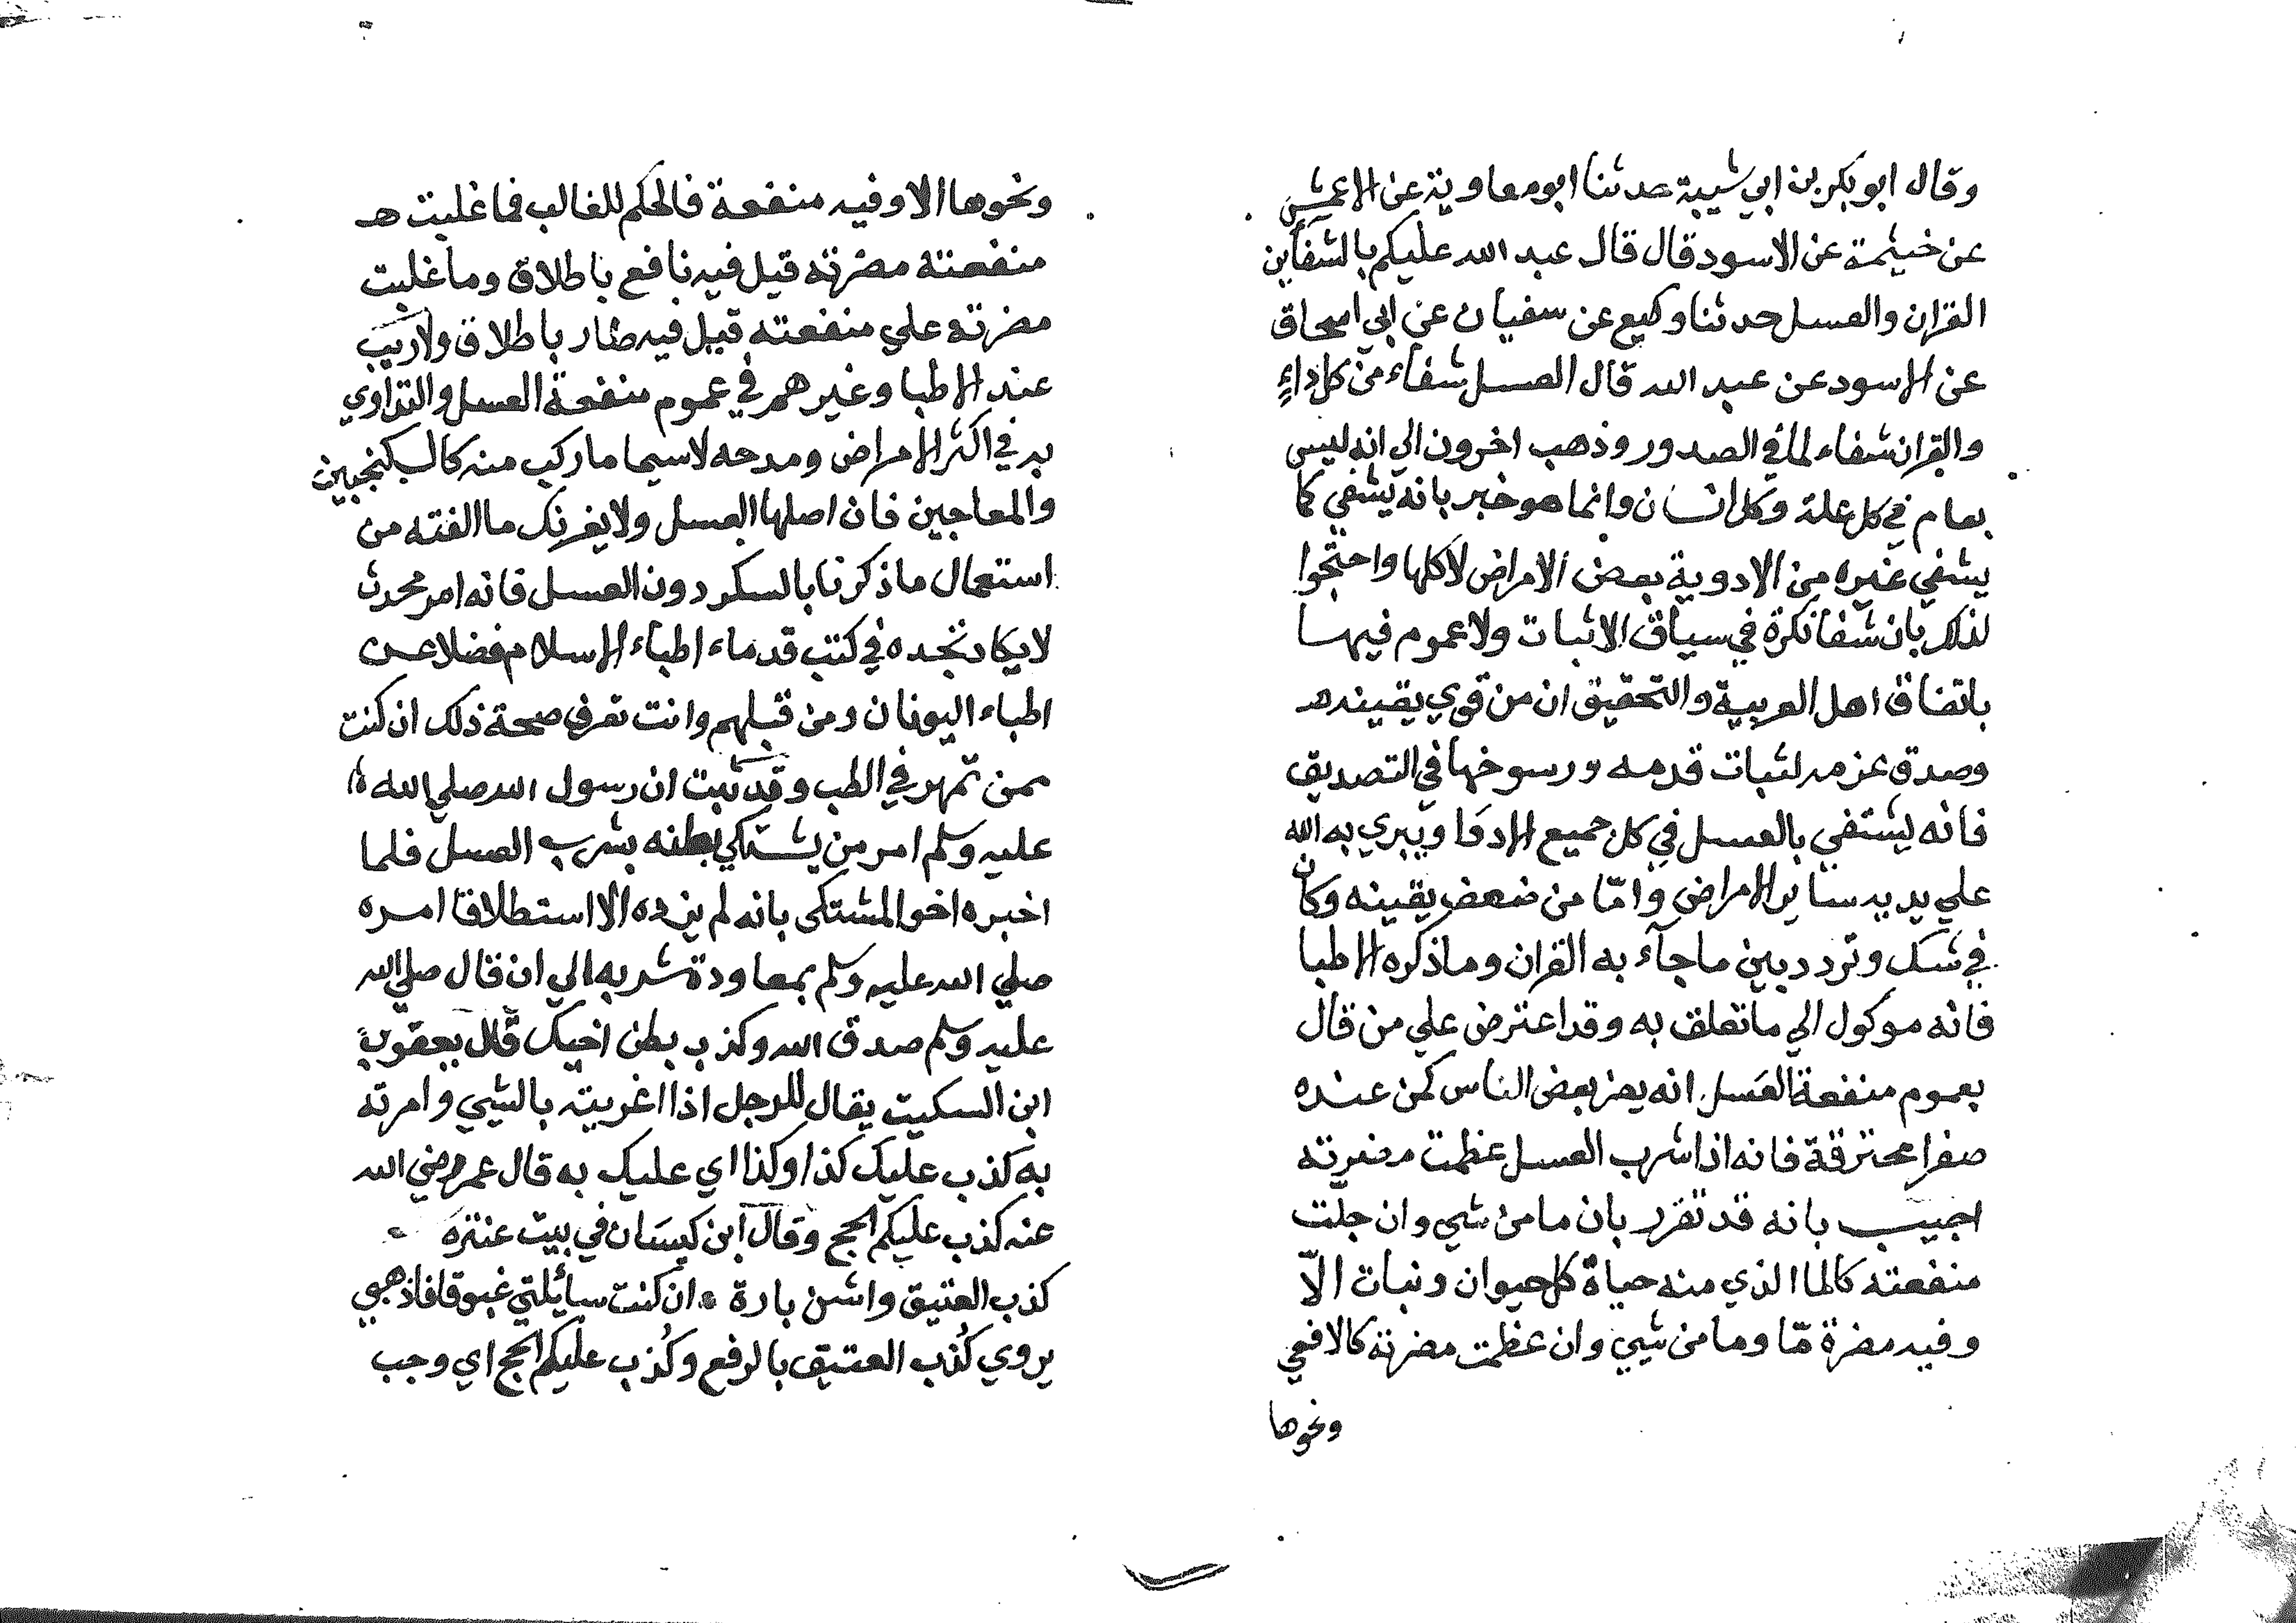 وقال ابو بكر بن ابي شيبة حدثنا ابو معاوية عن الاعمش
عن خيثمة عن الاسود قال قال عبد الله عليكم بالشفآين
القران والعسل حدثنا وكيع عن سفيان عن ابي اسحاق
عن الاسود عن عبد الله قال العسل شفاء من كل داءٍ
والقران شفاء لما في الصدور وذهب اخرون الي انه ليس
بعام في كل علة وكل انسان وانما هو خبر بانه يشفي كما
يشفي غيره من الادوية بعض الامراض لا كلها واحتجوا
لذلك بان شفا نكرة في سياق الاثبات ولا عموم فيها
باتفاق اهل العربية والتحقيق ان من قوي يقينه
وصدق عزمه لثبات قدمه ورسوخها في التصديق
فانه يشتفي بالعسل في كل جميع الادوا ويبري به الله
علي يديه ساير الامراض وامّا من ضعف يقينه وكان
في شك وتردد بين ما جآء به القران وما ذكره الاطبا
فانه موكول الي ما تعلق به وقد اعترض علي من قال
بعموم منفعة العسل انه يضر بعض الناس كمن عنده
صفرا محترقة فانه اذا شرب العسل عظمت مضرته
اجيب بانه قد تقرر بان ما من شي وان جلت
منفعته كالما الذي منه حياة كل حيوان ونبات الّا
وفيه مضرة مّا وما من شي وان عظمت مضرته كالافعي
ونحوها
ونحوها الا وفيه منفعة فالحكم للغالب فما غلبت
منفعته مضرته قيل فيه نافع باطلاق وما غلبت
مضرته علي منفعته قيل فيه ضار باطلاق ولا ريب
عند الاطبا وغيرهم في عموم منفعة العسل والتداوي
به في اكثر الامراض ومدحه لا سيما ما ركب منه كالسكنجبين
والمعاجين فان اصلها العسل ولا يغرنك ما الفته من
استعمال ما ذكرنا بالسكر دون العسل فانه امر محدث
لا يكاد تجده في كتب قدماء اطباء الاسلام فضلا عن
اطباء اليونان ومن قبلهم وانت تعرف صحة ذلك ان كنت
ممن تمهر في الطب وقد ثبت ان رسول الله صلي الله
عليه وسلم امر من يشتكي بطنه بشرب العسل فلما
اخبره اخو المشتكي بانه لم يزده الا استطلاقا امره
صلي الله عليه وسلم بمعاودة شربه الي ان قال صلي الله
عليه وسلم صدق الله وكذب بطن اخيك قال يعقوب
ابن السكيت يقال للرجل اذا اغريته بالشي وامرته
به كذب عليك كذا وكذا اي عليك به قال عمر رضي الله
عنه كذب عليكم الحج وقال ابن كيسان في بيت عنترة
كذب العتيق واشن بارة ان كنت سائلتي غبوقا فاذهبي
يروي كُذب العتيق بالرفع وكُذب عليكم الحج اي وجب